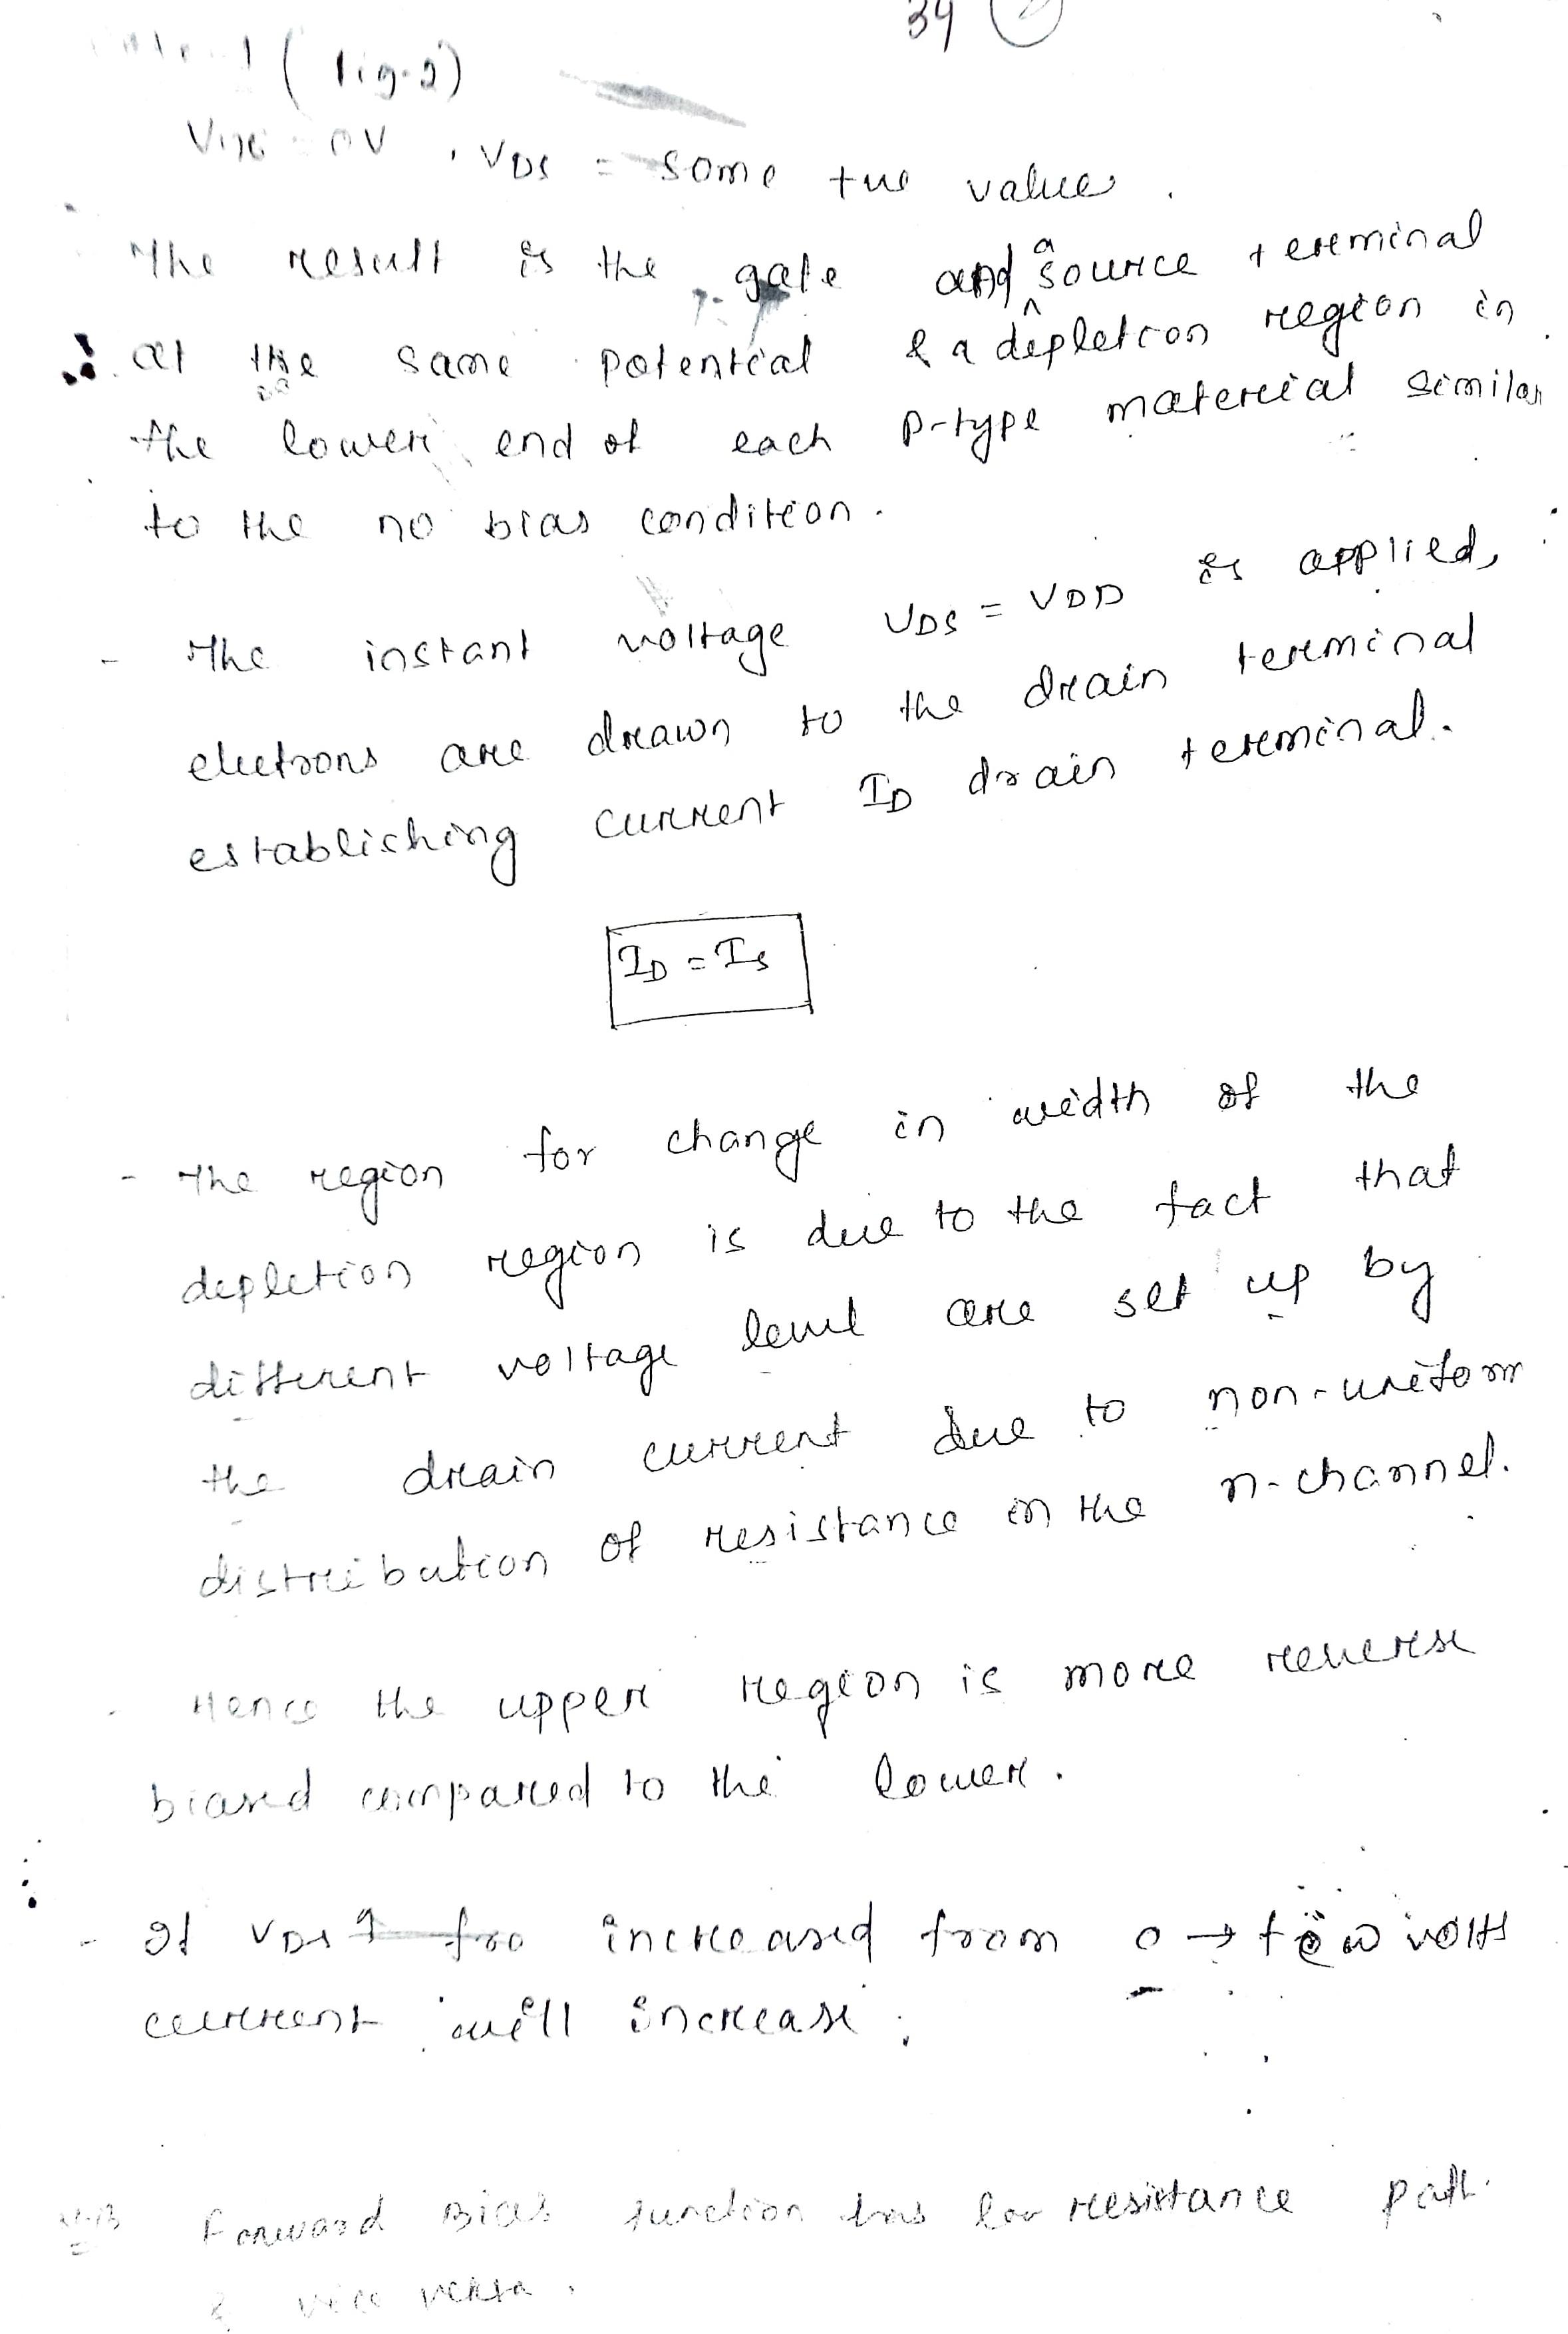 34 2
(fig-2)
VGS = 0V , VDS = some +ve value .
The result is the gate and source terminal
at the same potential & a depletion region in
the lower end of each P-type material similar
to the no bias condition .
- The instant voltage VDS = VDD is applied,
electrons are drawn to the drain terminal
establishing current ID drain terminal .
ID = IS
- The region for change in width of the
depletion region is due to the fact that
different voltage level are set up by
the drain current due to non-uniform
distribution of resistance in the n-channel.
Hence the upper region is more reverse
biased compared to the lower .
- If VDS ↑ fro increased from 0 → few volts
current will increase .
Forward Bias Junction has low resistance path.
& vice versa .